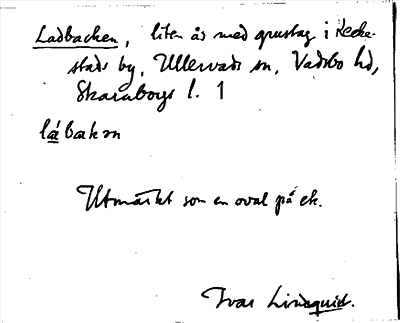 Ladbacken, liten ås med grustag i Recke-
stads by, Ullervads sn, Vadsbo hd,
Skaraborgs l. 1
låbakən
Utmärkt som en oval på ek.
Ivar Lindquist.